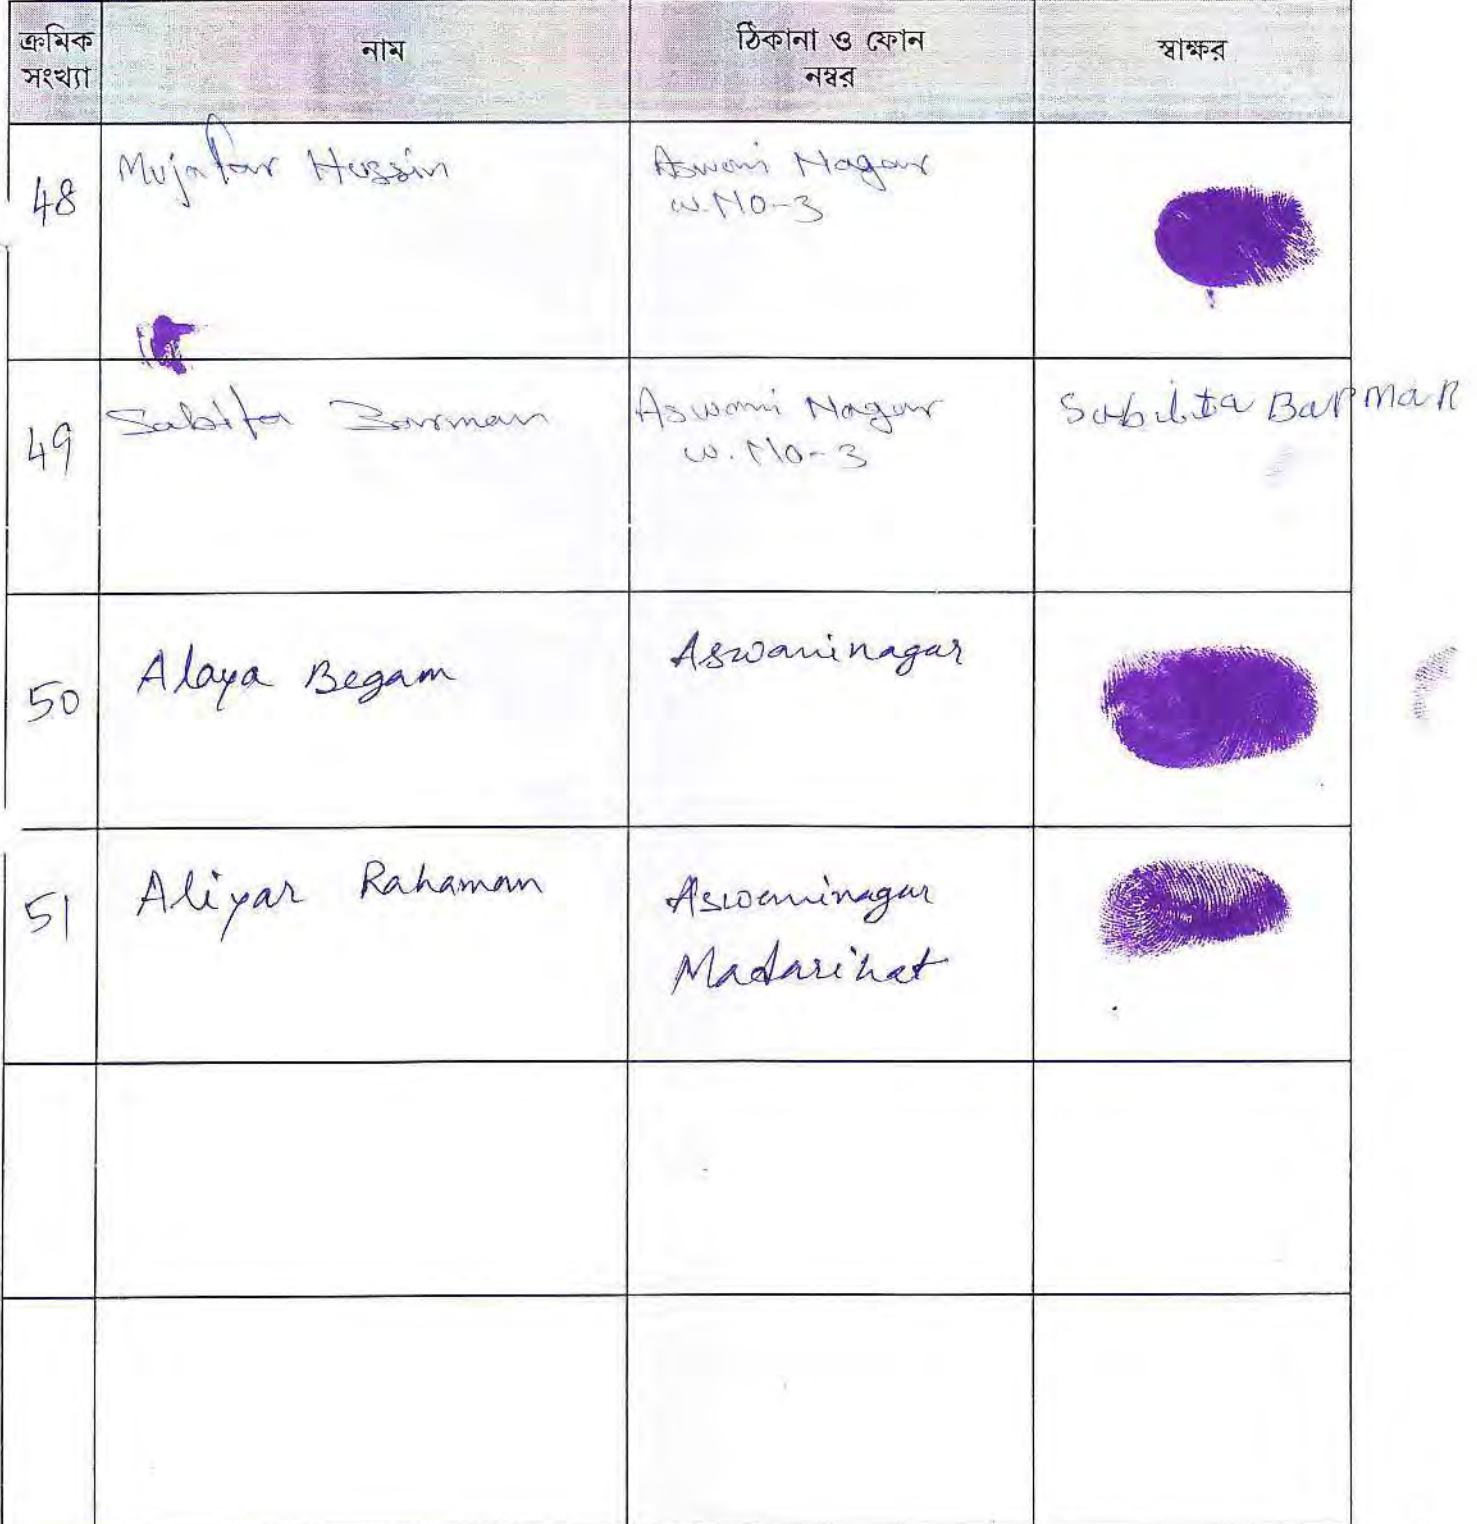 ক্রমিক সংখ্যা নাম ঠিকানা ও ফোন নম্বর স্বাক্ষর
48 Mujafar Hussin Aswani Nagar
W.NO-3
49 Sabita Barman Aswani Nagar Sabita Barman
W.No-3
50 Alaya Begam Aswaninagar
51 Aliyar Rahaman Aswaninagar
Madarihat